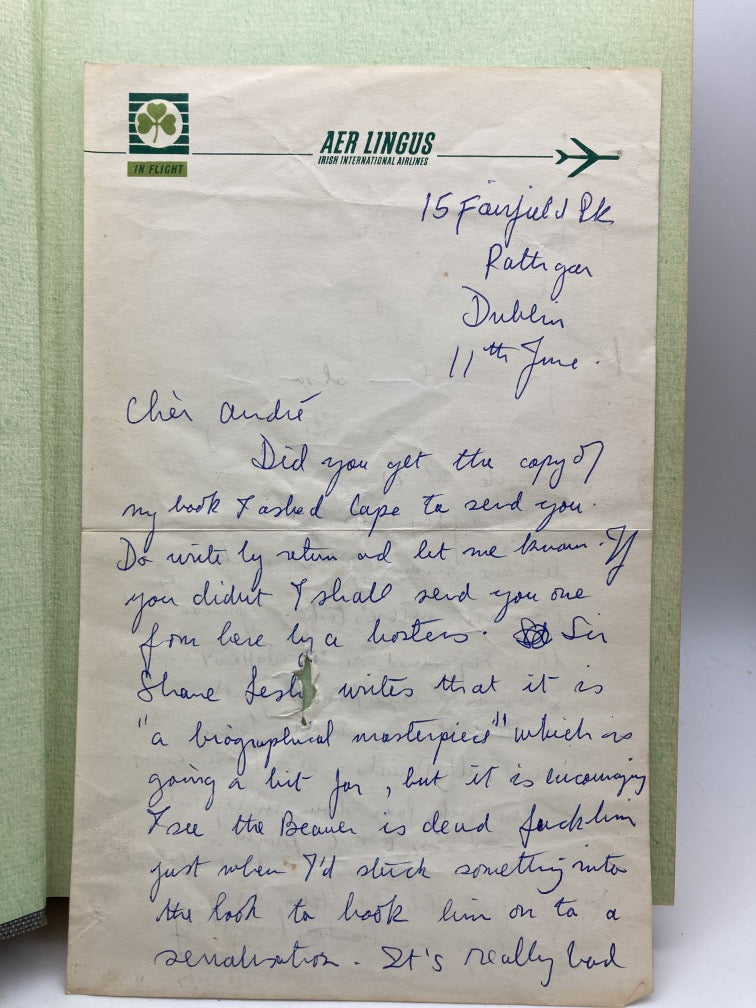 IN FLIGHT
AER LINGUS
IRISH INTERNATIONAL AIRLINES
15 Fairfield Pk
Rathgar
Dublin
11th June.
Chèr André
Did you get the copy of
my book I asked Cape to send you.
Do write by return and let me know. If
you didnt I shall send you one
from here by a hosters. Sir
Shane Leslie writes that it is
"a biographical masterpiece" which is
going a bit far, but it is encouraging
I see the Beaver is dead fuck him
just when I'd stuck something into
the book to hook him on to a
serialisation. It's really bad